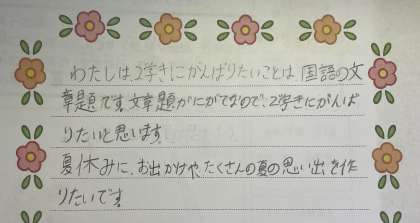 わたしは、2学きにがんばりたいことは、国語の文
章題です。文章題がにがてなので、2学きにがんば
りたいと思います。
夏休みに、お出かけや、たくさんの夏の思い出を作
りたいです